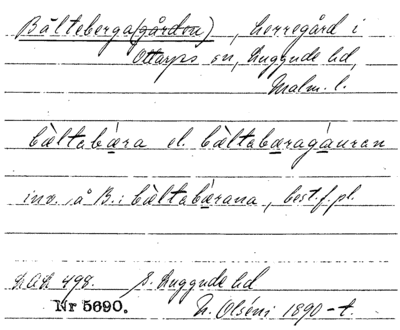 Bälteberga(gården), herregård i
Ottarps sn, Luggude hd,
Malm. l.
bæ̀ltabǽra el. bæ̀ltabæragáuran
inv. å B.: bæ̀ltabǽrana, best. f. pl.
LAL 498. S. Luggude hd
Nr 5690. N. Olséni 1890-t.